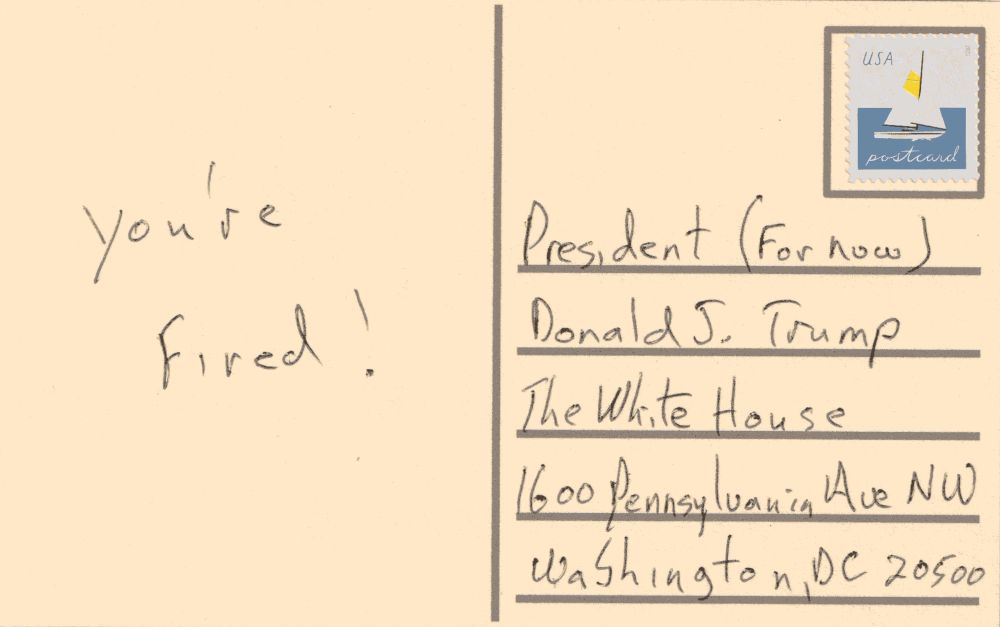 you're
fired!
USA
postcard
President (For now)
Donald J. Trump
The White House
1600 Pennsylvania Ave NW
Washington, DC 20500